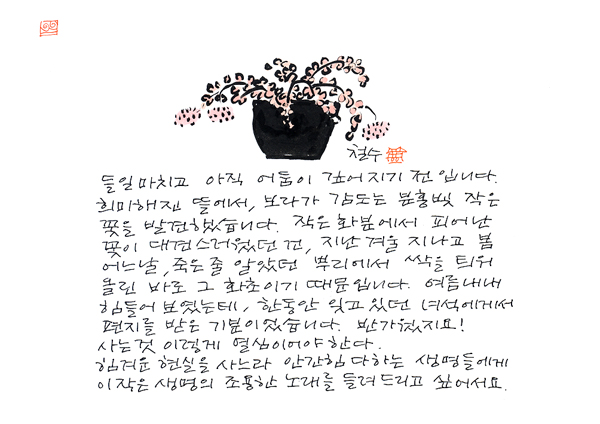 철수
들일 마치고 아직 어둠이 깊어지기 전입니다.
희미해진 뜰에서, 보라가 감도는 분홍빛 작은
꽃을 발견했습니다. 작은 화분에서 피어난
꽃이 대견스러웠던 건, 지난 겨울 지나고 봄
어느날, 죽은 줄 알았던 뿌리에서 싹을 틔워
올린 바로 그 화초이기 때문입니다. 여름내내
힘들어 보였는데, 한동안 잊고 있던 녀석에게서
편지를 받은 기분이었습니다. 반가웠지요!
사는것 이렇게 열심이어야 한다.
힘겨운 현실을 사느라 안간힘 다하는 생명들에게
이 작은 생명의 조용한 노래를 들려 드리고 싶어서요.